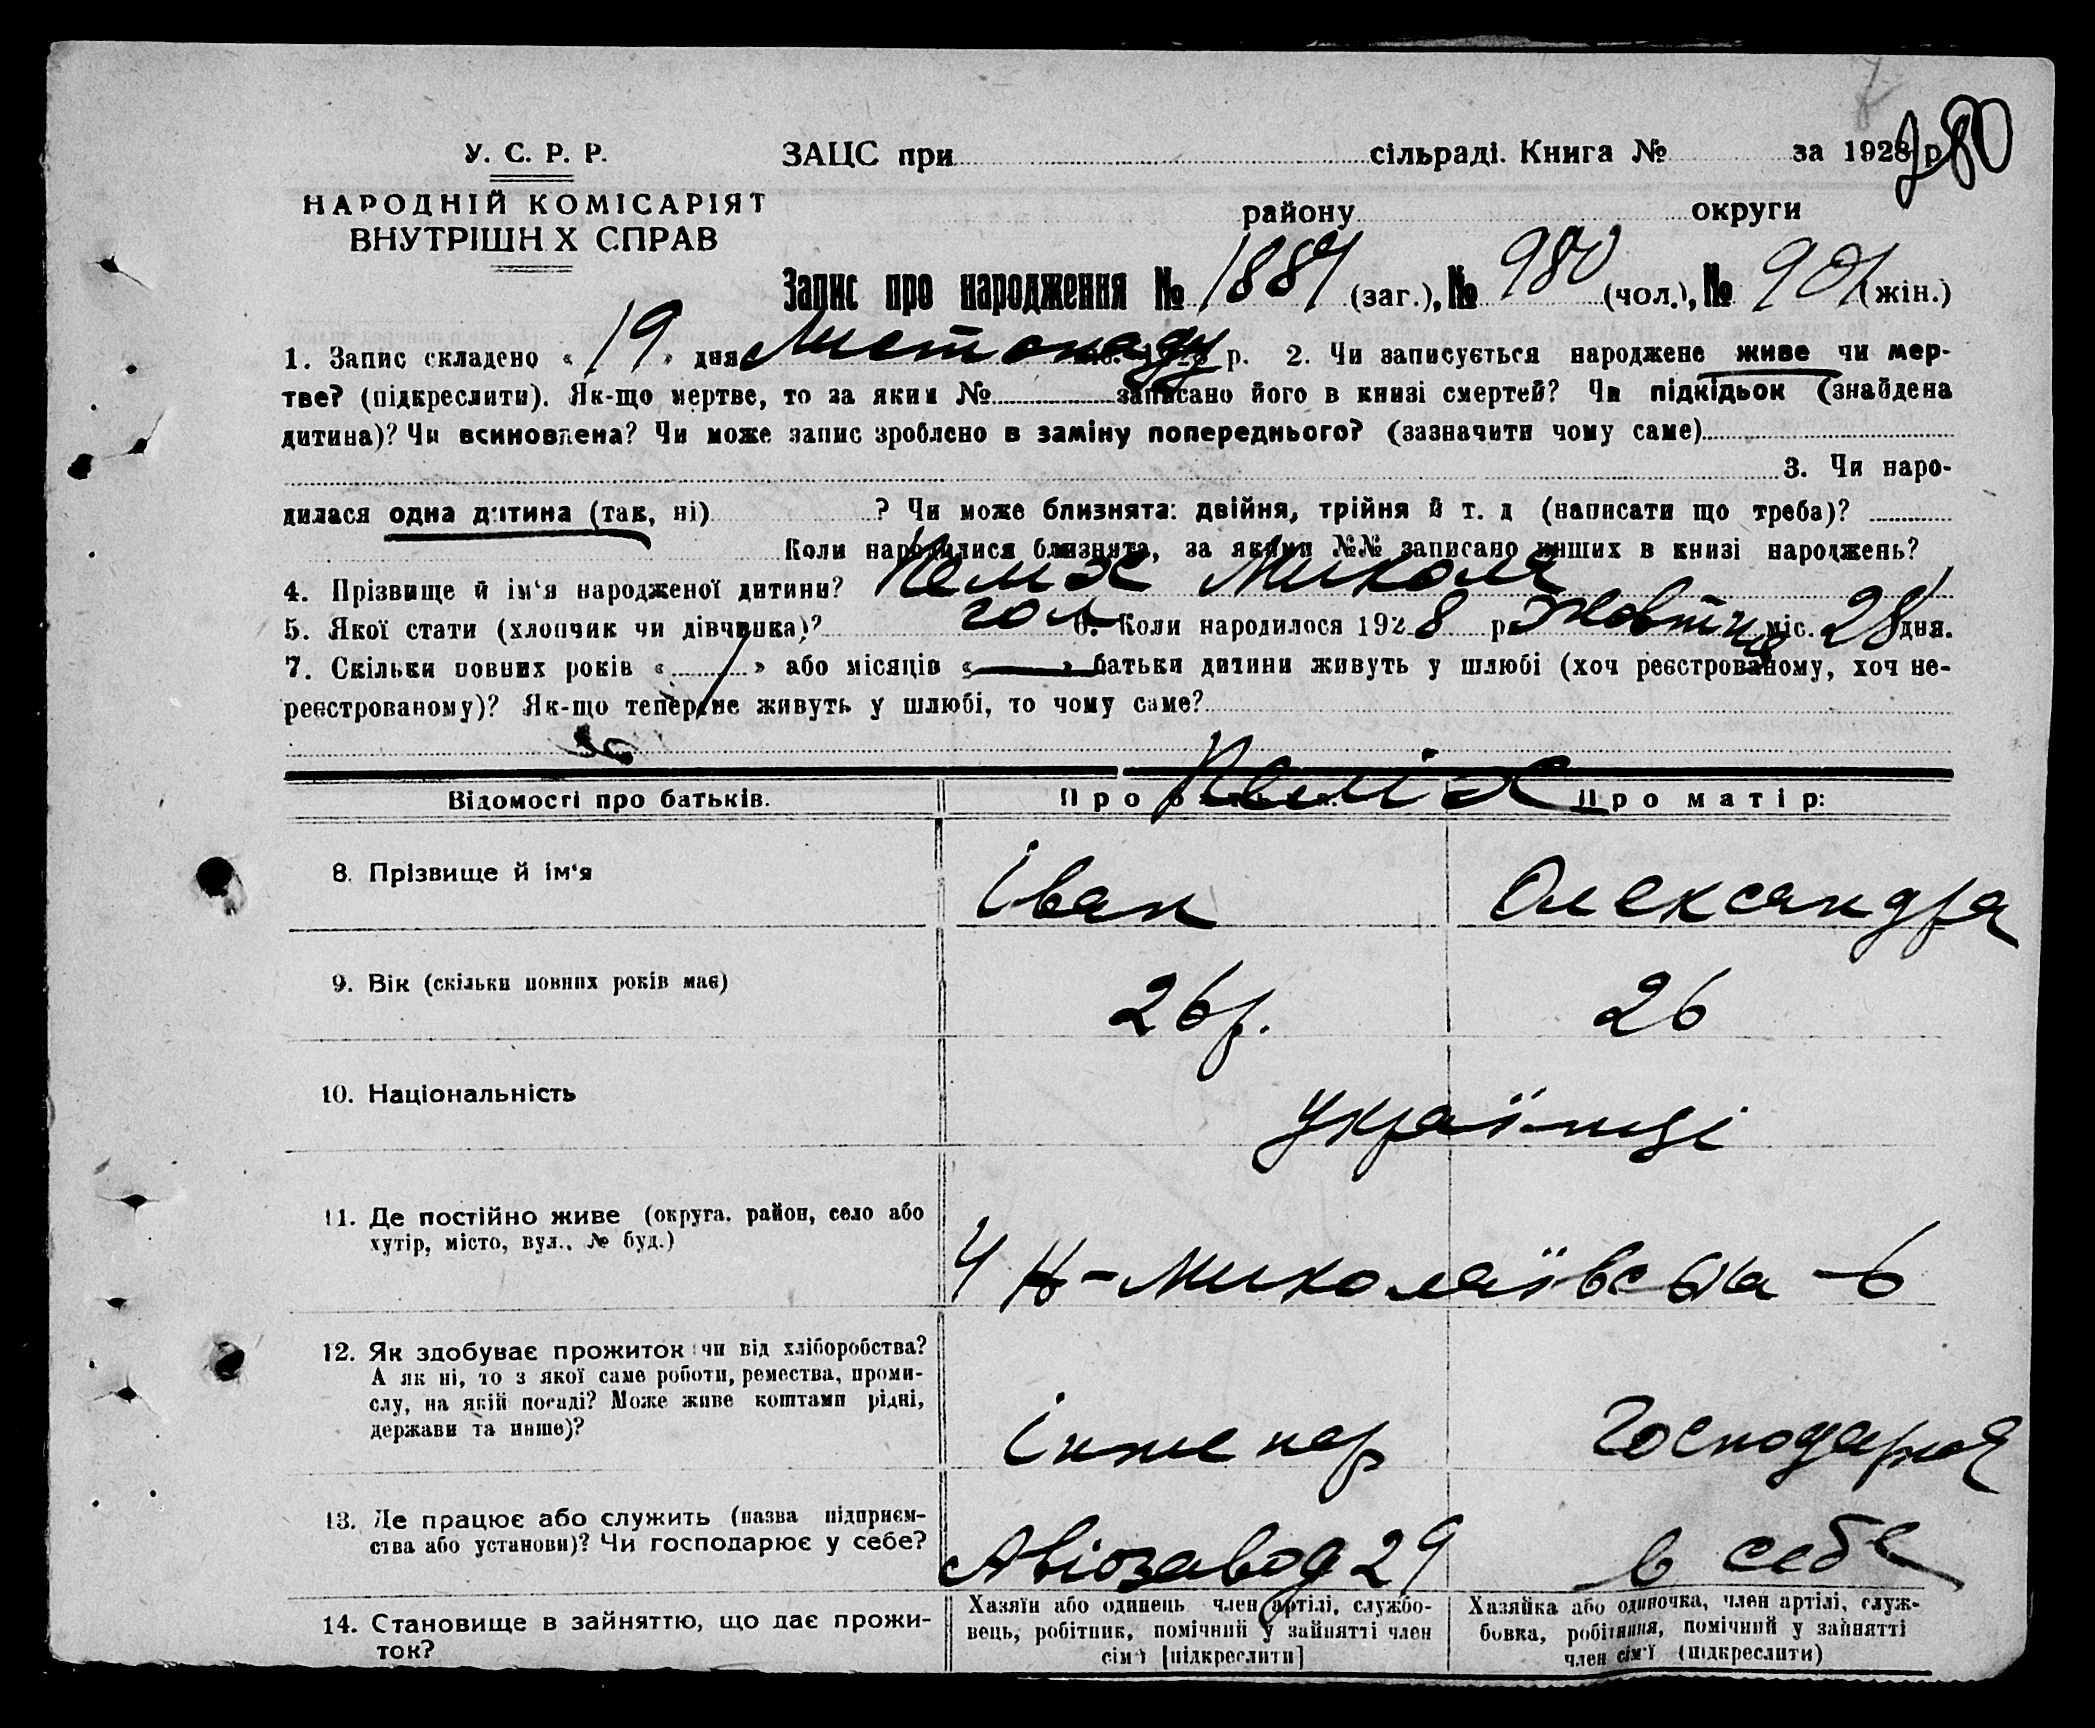 280
У. С. Р. Р.
ЗАЦС при сільраді. Книга № за 1928 р.
НАРОДНІЙ КОМІСАРІЯТ
ВНУТРІШН Х СПРАВ
району округи
Запис про народження № 1881 (заг.), № 980 (чол.), № 901 (жін.)
1. Запис складено « 19 » дня Листопаду р. 2. Чи записується народжене живе чи мер-
тве? (підкреслити). Як-що мертве, то за яким № записано його в книзі смертей? Чи підкідьок (знайдена
дитина)? Чи всиновлена? Чи може запис зроблено в заміну попереднього? (зазначити чому саме)
3. Чи наро-
дилася одна дитина (так, ні) ? Чи може близнята: двійня, трійня й т. д (написати що треба)?
Коли народилися близнята, за якими №№ записано инших в книзі народжень?
4. Прізвище й ім‘я народженої дитини? Пеліх Микола
5. Якої стати (хлопчик чи дівчинка)? чол 6. Коли народилося 1928 р. Жовтня міс. 28 дня.
7. Скільки повних років « 1 » або місяців « — » батьки дитини живуть у шлюбі (хоч реєстрованому, хоч не-
реєстрованому)? Як-що тепер не живуть у шлюбі, то чому саме?
Пеліх
Відомості про батьків. Про Про матір:
8. Прізвище й ім‘я Іван Олександра
9. Вік (скільки повних років має) 26 р. 26
10. Національність Українці
11. Де постійно живе (округа, район, село або
хутір, місто, вул., № буд.) Н-Миколаївська - 6
12. Як здобуває прожиток чи від хліборобства?
А як ні, то з якої саме роботи, ремества, проми-
слу, на якій посаді? Може живе коштами рідні,
держави та инше)? Інженер Господарює
13. Де працює або служить (назва підприєм-
ства або установи)? Чи господарює у себе? Авіозавод 29 в себе
14. Становище в зайняттю, що дає прожи-
ток?
Хазяїн або одинець член артілі, службо-
вець, робітник, помічний у зайнятті член
сім‘ї [підкреслити]
Хазяйка або одиночка, член артілі, служ-
бовка, робітниця, помічний у зайнятті
член сім‘ї (підкреслити)